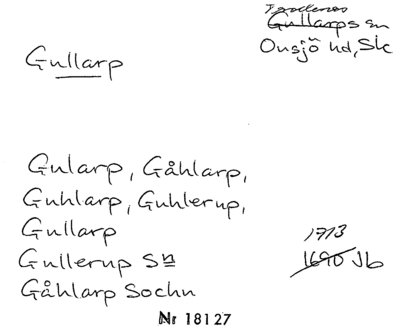 Gullarp
Trollenäs
Gullarps sn
Onsjö hd, Sk
Gularp, Gåhlarp,
Guhlarp, Guhlerup,
Gullarp
Gullerup Sn
Gåhlarp Sochn
1713
1690 Jb
Nr 18127